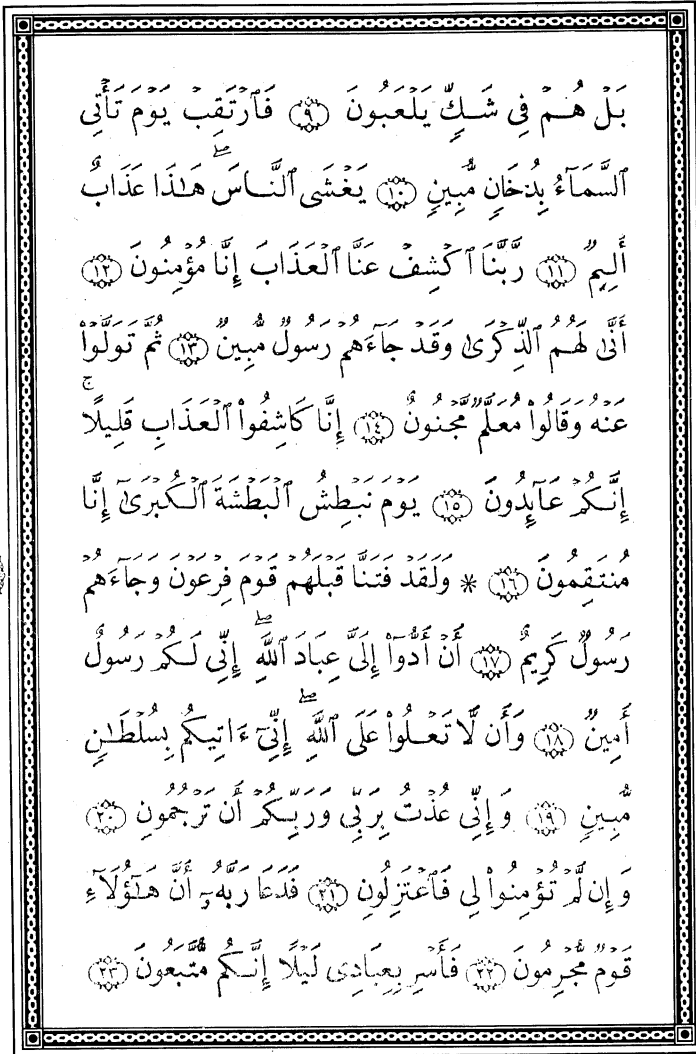 بَلْ هُمْ فِي شَكٍّ يَلْعَبُونَ ﴿٩﴾ فَٱرْتَقِبْ يَوْمَ تَأْتِي
ٱلسَّمَآءُ بِدُخَانٍ مُّبِينٍ ﴿١٠﴾ يَغْشَى ٱلنَّاسَۖ هَٰذَا عَذَابٌ
أَلِيمٌ ﴿١١﴾ رَّبَّنَا ٱكْشِفْ عَنَّا ٱلْعَذَابَ إِنَّا مُؤْمِنُونَ ﴿١٢﴾
أَنَّىٰ لَهُمُ ٱلذِّكْرَىٰ وَقَدْ جَآءَهُمْ رَسُولٌ مُّبِينٌ ﴿١٣﴾ ثُمَّ تَوَلَّوْا۟
عَنْهُ وَقَالُوا۟ مُعَلَّمٌ مَّجْنُونٌ ﴿١٤﴾ إِنَّا كَاشِفُوا۟ ٱلْعَذَابِ قَلِيلًاۚ
إِنَّكُمْ عَآئِدُونَ ﴿١٥﴾ يَوْمَ نَبْطِشُ ٱلْبَطْشَةَ ٱلْكُبْرَىٰٓ إِنَّا
مُنتَقِمُونَ ﴿١٦﴾ * وَلَقَدْ فَتَنَّا قَبْلَهُمْ قَوْمَ فِرْعَوْنَ وَجَآءَهُمْ
رَسُولٌ كَرِيمٌ ﴿١٧﴾ أَنْ أَدُّوٓا۟ إِلَىَّ عِبَادَ ٱللَّهِۖ إِنِّي لَكُمْ رَسُولٌ
أَمِينٌ ﴿١٨﴾ وَأَن لَّا تَعْلُوا۟ عَلَى ٱللَّهِۖ إِنِّيٓ ءَاتِيكُم بِسُلْطَٰنٍ
مُّبِينٍ ﴿١٩﴾ وَإِنِّي عُذْتُ بِرَبِّي وَرَبِّكُمْ أَن تَرْجُمُونِ ﴿٢٠﴾
وَإِن لَّمْ تُؤْمِنُوا۟ لِي فَٱعْتَزِلُونِ ﴿٢١﴾ فَدَعَا رَبَّهُۥٓ أَنَّ هَٰٓؤُلَآءِ
قَوْمٌ مُّجْرِمُونَ ﴿٢٢﴾ فَأَسْرِ بِعِبَادِي لَيْلًا إِنَّكُم مُّتَّبَعُونَ ﴿٢٣﴾